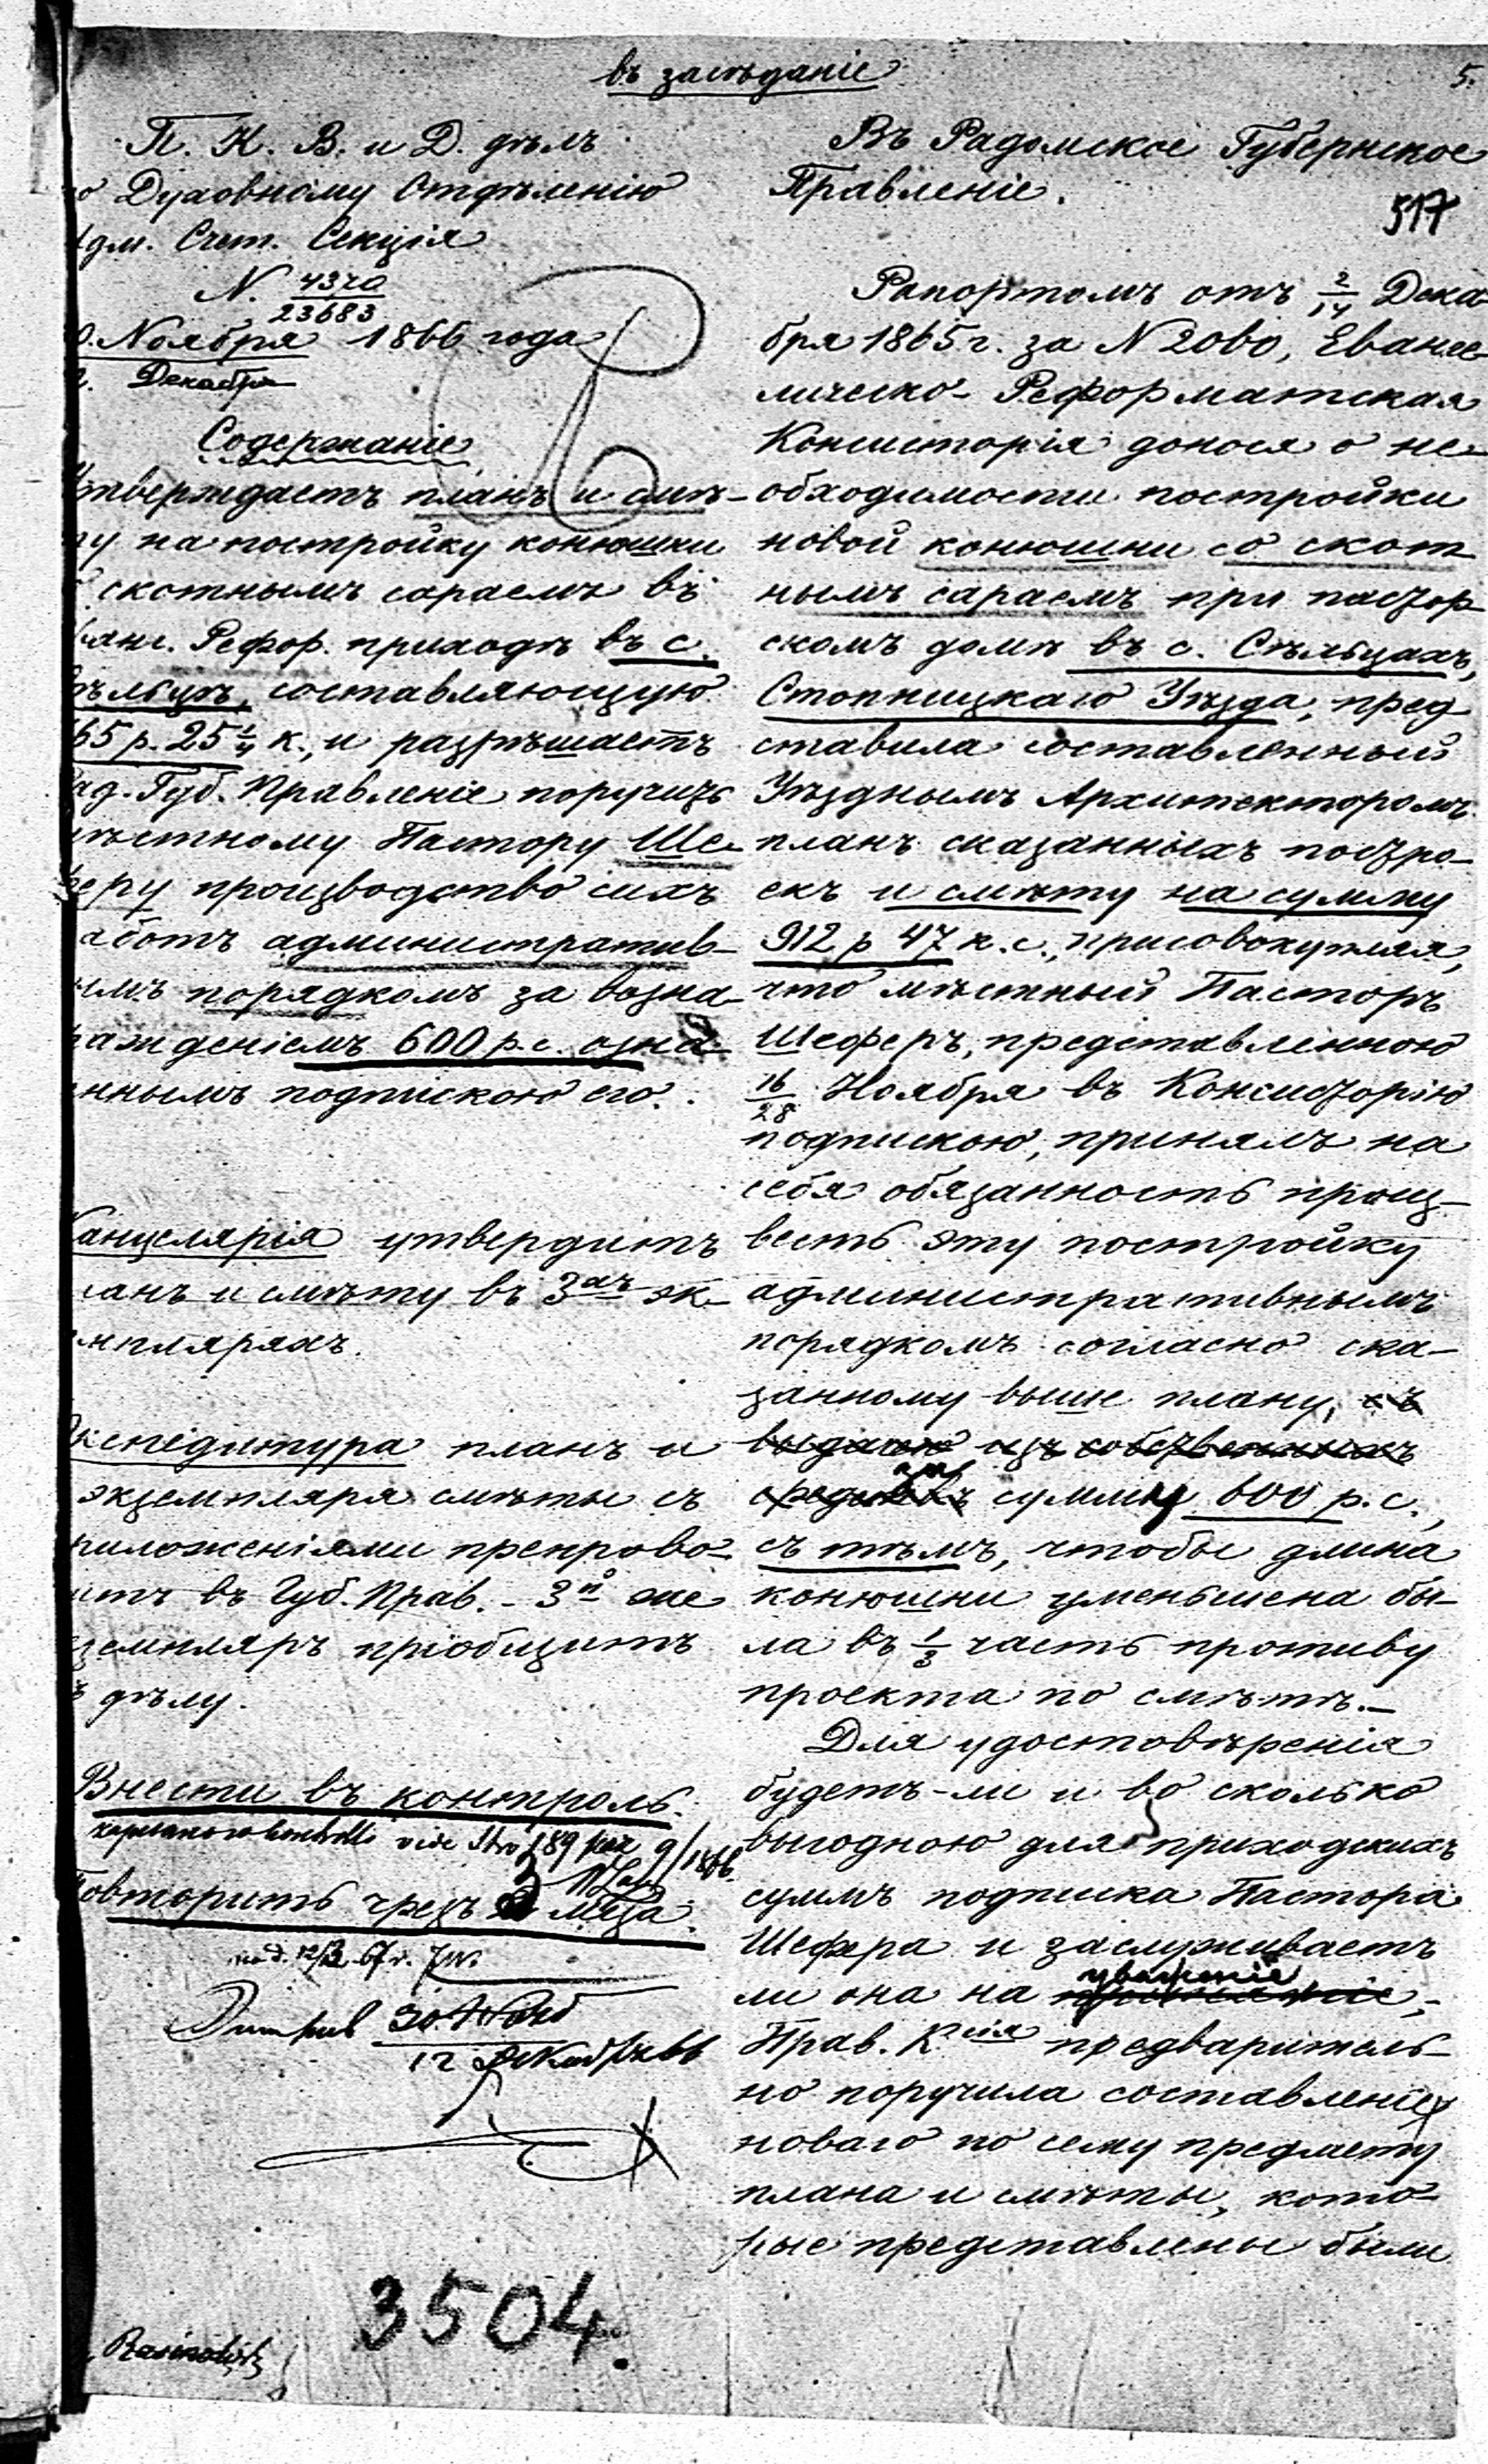 въ засѣданіе
5.
П. К. В. и Д. дѣлъ
о Духовному Отдѣленію
дм. Счет. Секція
N. 4370/23683
0. Ноября 1866 года
2. Декабря
Содержаніе
тверждаетъ планъ и смѣ-
ту на постройку конюшни
скотнымъ сараемъ въ
ванг. Рефор. приходѣ въ с.
ѣльцѣ, составляющую
65 р. 25 1/4 к., и разрѣшаетъ
ад. Губ. Правленіе поручить
мѣстному Пастору Ше-
феру производство сихъ
аботъ административ-
нымъ порядкомъ за возна-
ражденіемъ 600 р. с. озна-
ннымъ подпискою его.
Канцелярія утвердитъ
ланъ и смѣту въ 3хъ эк-
емплярахъ.
Экспедитура планъ и
экземпляра смѣты съ
риложеніями препрово-
итъ въ Губ. Прав. - 3й же
земпляръ пріобщитъ
ъ дѣлу.
Внести въ контроль.
vide Stro 89 poz 9/1866.
Повторить чрезъ 3 м-ца.
12 Декабр 66
3504.
Въ Радомское Губернское
Правленіе.
517
Рапортомъ отъ 2/14 Дека-
бря 1865 г. за N 2060, Евангe-
лическо-Реформатская
Консисторія донося о не-
обходимости постройки
новой конюшни со скот-
нымъ сараемъ при пастор-
скомъ домѣ въ с. Сѣльцахъ,
Стопницкаго Уѣзда, пред-
ставила составленный
Уѣзднымъ Архитекторомъ
планъ сказанныхъ постро-
екъ и смѣту на сумму
912 р 47 к. с., присовокупляя,
что мѣстный Пасторъ
Шеферъ, представленною
16/28 Ноября въ Консисторію
подпискою, принялъ на
себя обязанность произ-
весть эту постройку
административнымъ
порядкомъ согласно ска-
занному выше плану, съ
выдачею изъ собственныхъ
средствъ за сумму 600 р. с.,
съ тѣмъ, чтобы длина
конюшни уменьшена бы-
ла въ 1/3 часть противу
проекта по смѣтѣ.-
Для удостовѣренія
будетъ-ли и во сколько
выгодною для приходскихъ
суммъ подписка Пастора
Шефера и заслуживаетъ
ли она на уваженіе,-
Прав. К-сія предваритель-
но поручила составленіе
новаго по сему предмету
плана и смѣты, кото-
рые представлены были